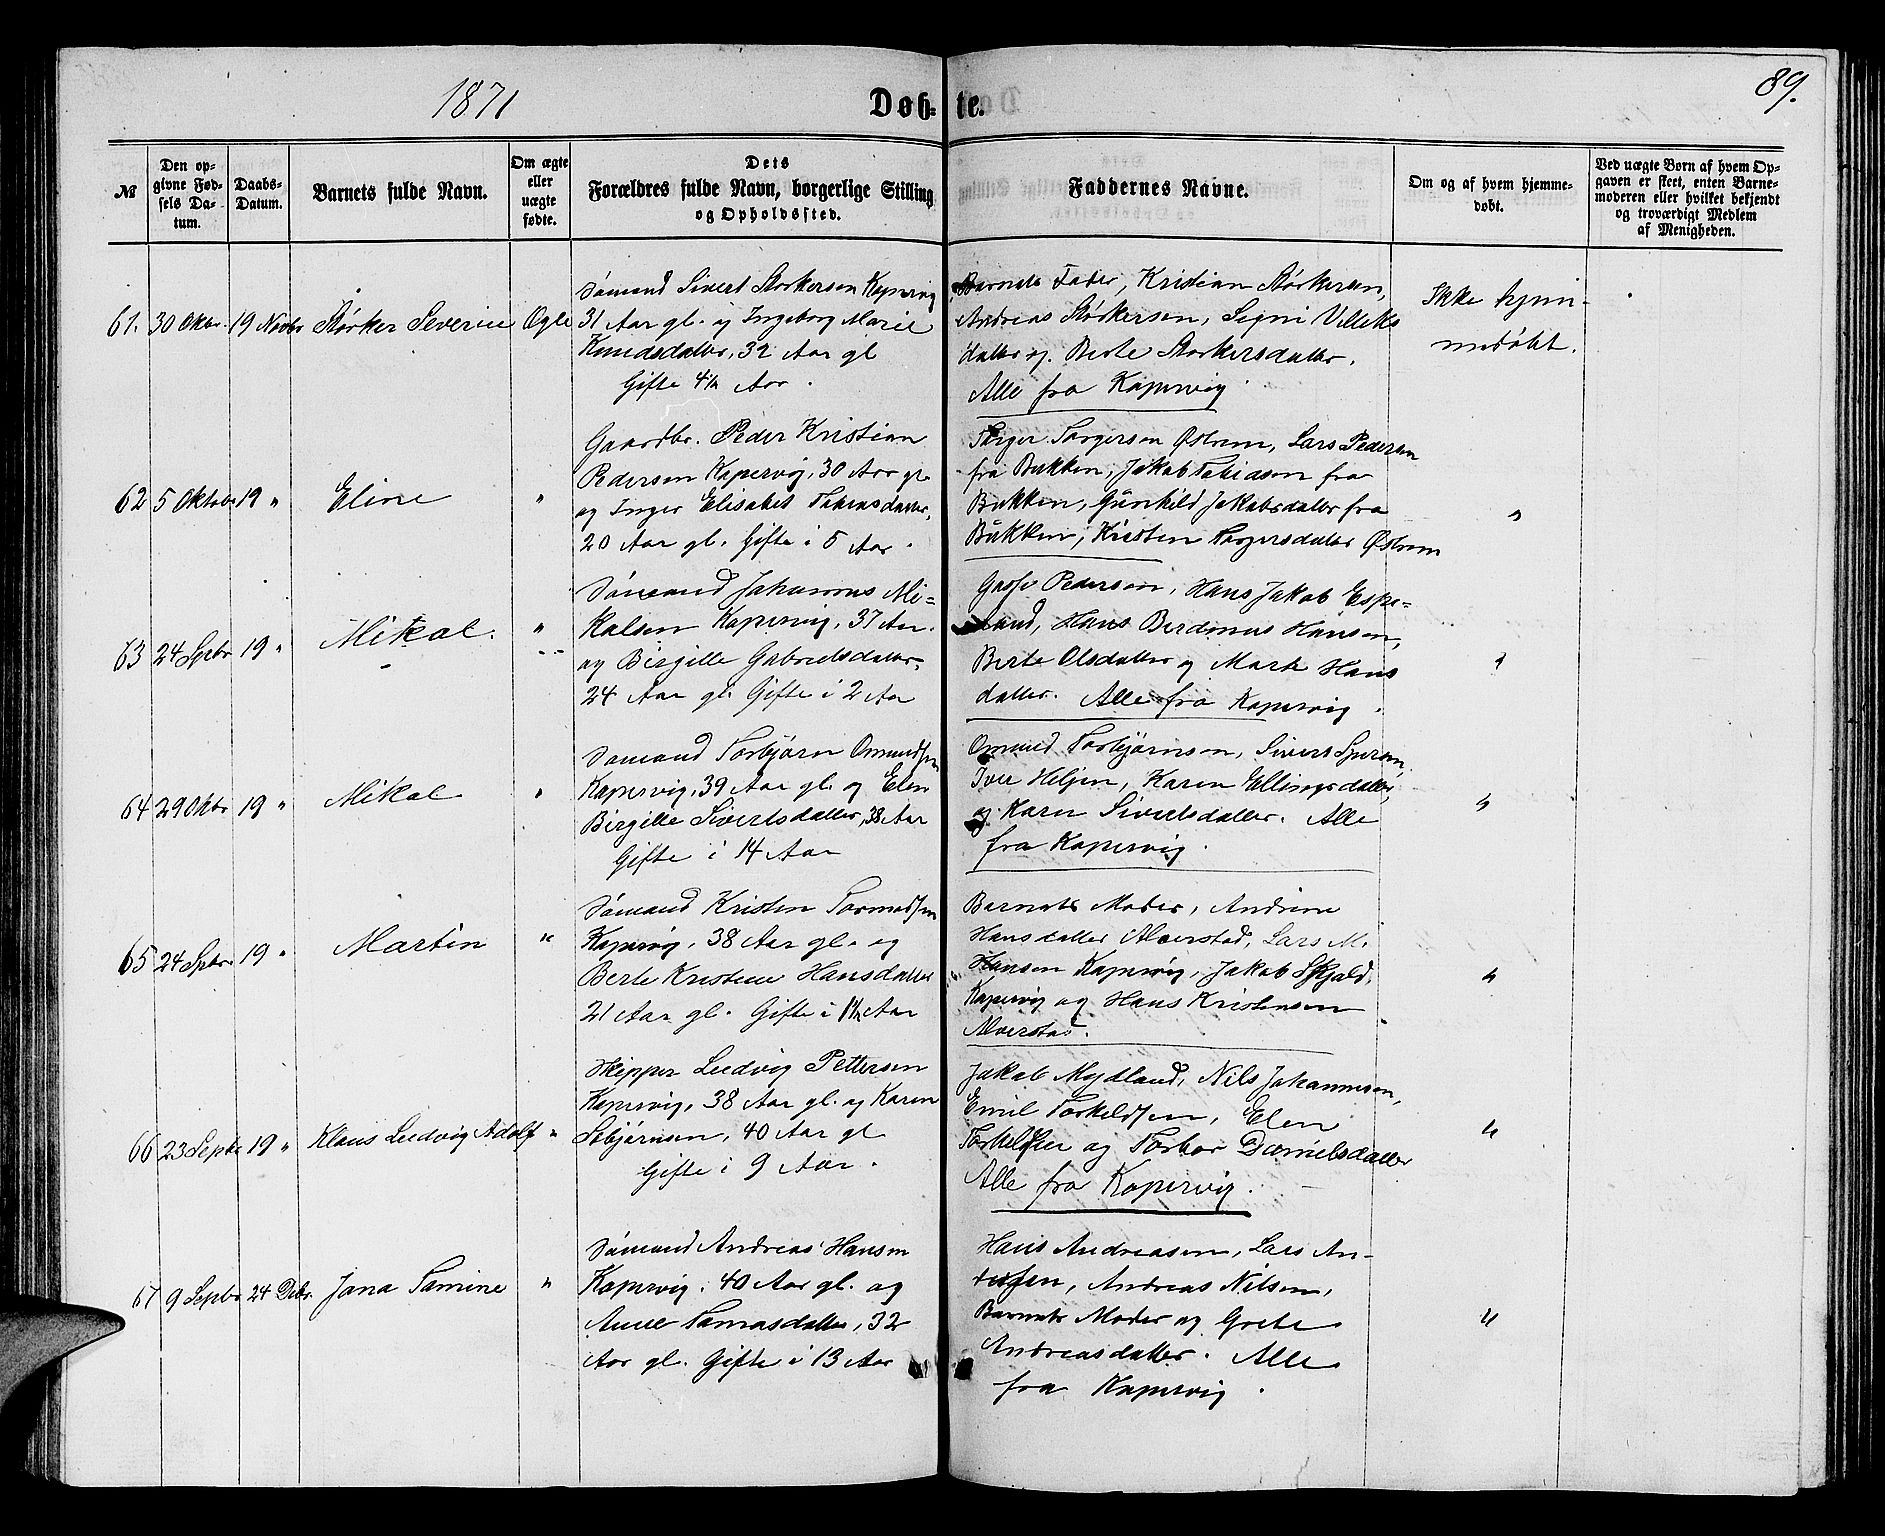 1871
Døb-te.
89.
№
Den op-
givne Fød-
sels Da-
tum.
Daabs-
Datum.
Barnets fulde Navn.
Om ægte
eller
uægte
fødte.
Dets
Forældres fulde Navn, borgerlige Stilling
og Opholdssted.
Faddernes Navne.
Om og af hvem hjemme-
døbt.
Ved uægte Børn af hvem Op-
gaven er skeet, enten Barne-
moderen eller hvilket bekjendt
og troværdigt Medlem
af Menigheden.
61. 30 Oktbr. 19 Novbr Størker Severin Ægte
Sømand Sivert Størkersen Kopervig
31 Aar gl. og Ingeborg Marie
Knudsdatter, 32 Aar gl
Gifte 4½ Aar.
Barnets Fader, Kristian Størkersen,
Andreas Størkersen, Signi Villeks
datter og Berte Størkersdatter.
Alle fra Kopervig.
Ikke hjem-
medøbt.
62 5 Oktobr 19 " Eline "
Gaardbr. Peder Kristian
Pedersen Kopervig, 30 Aar gl.
og Inger Elisabet
20 Aar gl. Gifte i 5 Aar.
Torger Torgersen Østrem, Lars Pedersen
fra Bukken, Jakob fra
Bukken, Gunhild Jakobsdatter fra
Bukken, Kristen Torgersdatter Østrem
"
63 24 Spbr 19 " Mikal. "
Sømand Johannes Mi-
kalsen Kopervig, 37 Aar.
og Birgitte Gabrielsdatter
24 Aar gl. Gifte i 2 Aar
Pedersen, Hans Jakob Espe-
land, Hans Berdinus Hansen,
Berte Olsdatter og Marte Hans
datter. Alle fra Kopervig.
"
64 29 Okbr 19 " Mikal "
Sømand Torbjørn Omundsen
Kopervig, 39 Aar gl. og Elen
Birgitte Sivertsdatter, 38 Aar
Gifte i 14 Aar
Omund Torbjørnsen, Sivert
Iver Heljen, Karen Ellingsdatter,
og Karen Sivertsdatter. Alle
fra Kopervig.
"
65 24 Spbr. 19 " Martin "
Sømand Kristen Tormodsen
Kopervig, 38 Aar gl. og
Berte Kristine Hansdatter
21 Aar gl. Gifte i 1½ Aar
Barnets Moder, Andrine
Hansdatter Alverstad, Lars M.
Hansen Kopervig, Jakob Skjold,
Kopervig og Hans Kristensen
Alverstad.
"
66 23 Septbr 19 " Klaus Ludvig Adolf "
Skipper Ludvig Pettersen
Kopervig, 38 Aar gl. og Karen
40 Aar gl
Gifte i 9 Aar.
Jakob Mydland, Nils Johannesen,
Emil Torkeldsen, Elen
Torkeldsen og Torbor Danielsdatter
Alle fra Kopervig.
"
67 9 Septbr 24 Debr. Jana Tamine "
Sømand Andreas Hansen
Kopervig. 40 Aar gl. og
Anne Tomasdatter, 32
Aar gl. Gifte i 13 Aar
Hans Andreasen, Lars An-
dersen, Andreas Nilsen,
Barnets Moder og Grete
Andreasdatter. Alle
fra Kopervig.
"